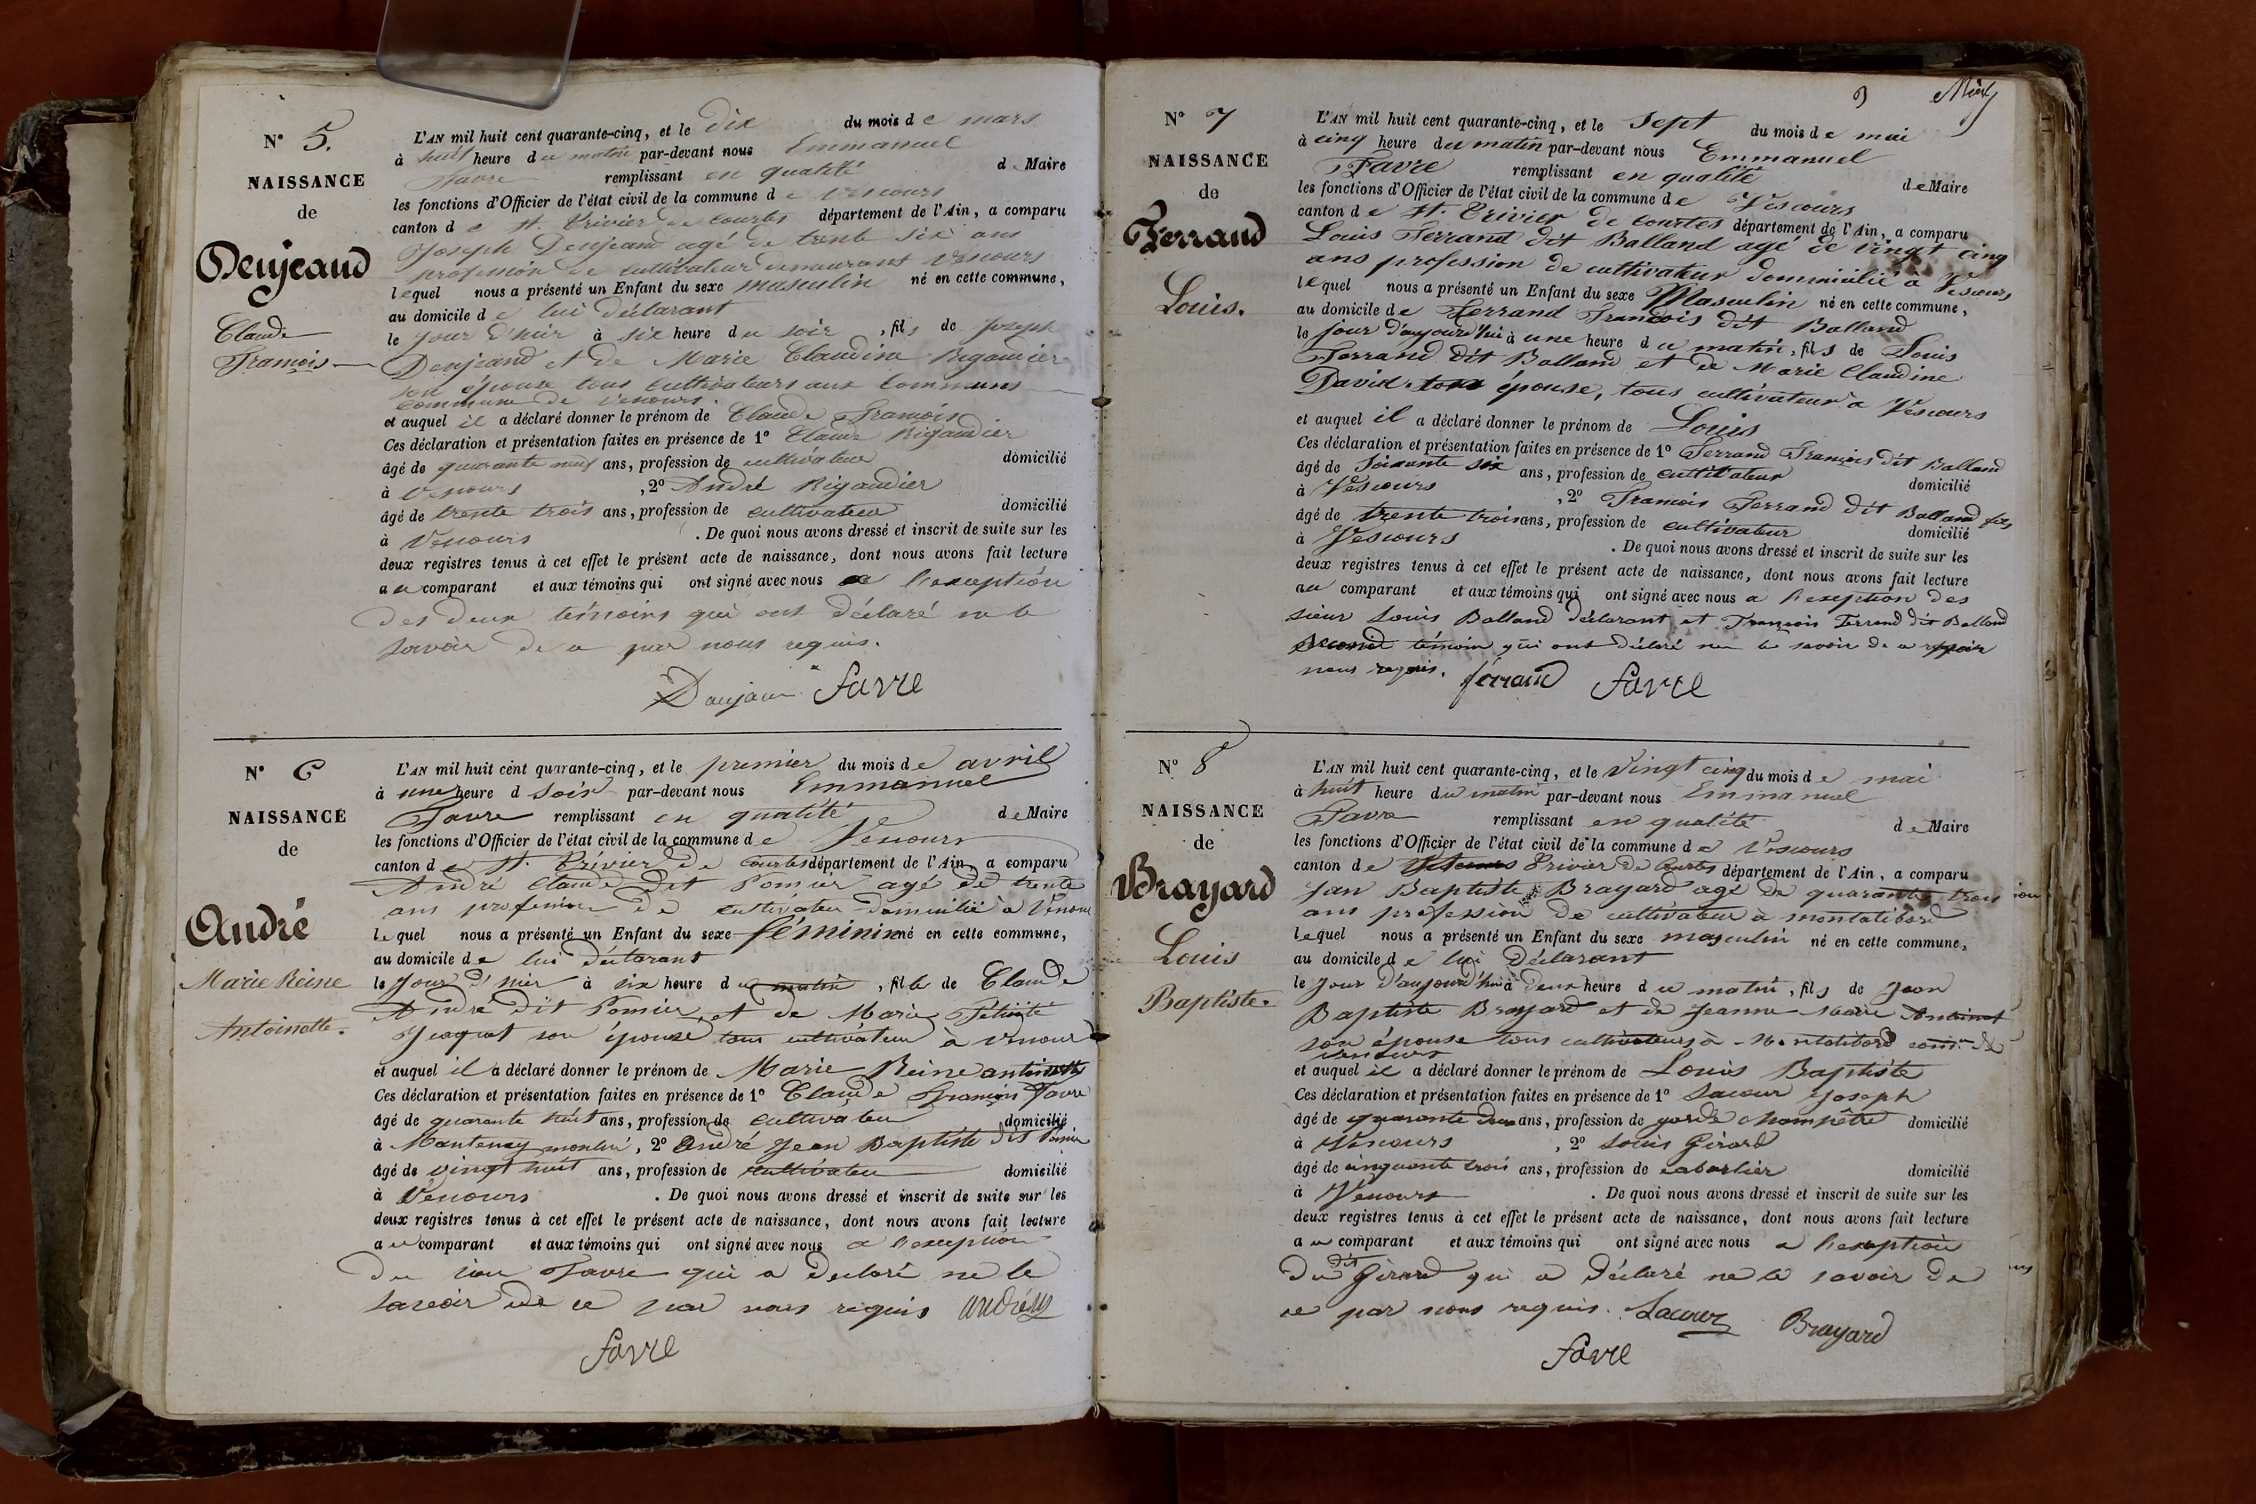 N° 5.
NAISSANCE
de
Deujeaud
Claude
François
L'AN mil huit cent quarante-cinq, et le dix du mois de mars
à huit heure du matin par-devant nous Emmanuel
Favre remplissant en qualité de Maire
les fonctions d'Officier de l'état civil de la commune de Vescours
canton de St. Trivier de Courtes département de l'Ain, a comparu
Joseph Deujeaud agé de trente six ans
profession de cultivateur demeurant Vescours
lequel nous a présenté un Enfant du sexe masculin né en cette commune,
au domicile de lui déclarant
le jour d'hier à six heure du soir, fils de Joseph
Deujeaud et de Marie Claudine Rigaudier
son épouse tous cultivateurs aux Communes
commune de Vescours.
et auquel il a déclaré donner le prénom de Claude François
Ces déclaration et présentation faites en présence de 1° Claude Rigaudier
âgé de quarante neuf ans, profession de cultivateur domicilié
à Vescours, 2° André Rigaudier
âgé de trente trois ans, profession de cultivateur domicilié
à Vescours. De quoi nous avons dressé et inscrit de suite sur les
deux registres tenus à cet effet le présent acte de naissance, dont nous avons fait lecture
au comparant et aux témoins qui ont signé avec nous a l'exception
des deux témoins qui ont déclaré ne le
savoir de ce par nous requis.
Favre
N° 6
NAISSANCE
de
André
Marie Reine
Antoinette.
L'AN mil huit cent quarante-cinq, et le premier du mois de avril
à une heure d soir par-devant nous Emmanuel
Favre remplissant en qualité de Maire
les fonctions d'Officier de l'état civil de la commune de Vescours
canton de St. Trivier de Courtes département de l'Ain, a comparu
André Claude dit Pomier agé de trente
ans profession de cultivateur domicilié à Vescours
lequel nous a présenté un Enfant du sexe féminin né en cette commune,
au domicile de lui déclarant
le jour d'hier à six heure du matin, fille de Claude
André dit Pomier, et de Marie Félicité
Jacquet son épouse tous cultivateur à Vescours
et auquel il a déclaré donner le prénom de Marie Reine antoinette
Ces déclaration et présentation faites en présence de 1° Claude François Favre
âgé de quarante huit ans, profession de cultivateur domicilié
à Mantenay montlin, 2° André Jean Baptiste dit Pomier
âgé de vingt huit ans, profession de cultivateur domicilié
à Vescours. De quoi nous avons dressé et inscrit de suite sur les
deux registres tenus à cet effet le présent acte de naissance, dont nous avons fait lecture
au comparant et aux témoins qui ont signé avec nous a l'exception
du Favre qui a déclaré ne le
savoir de ce par nous requis
Favre
3
N° 7
NAISSANCE
de
Ferrand
Louis.
L'AN mil huit cent quarante-cinq, et le Sept du mois de mai
à cinq heure du matin par-devant nous Emmanuel
Favre remplissant en qualité de Maire
les fonctions d'Officier de l'état civil de la commune de Vescours
canton de St. Trivier de Courtes département de l'Ain, a comparu
Louis Ferrand dit Balland agé de vingt cinq
ans profession de cultivateur domicilié à Vescours
lequel nous a présenté un Enfant du sexe Masculin né en cette commune,
au domicile de Ferrand François dit Balland
le jour d'aujourd'hui à une heure du matin, fils de Louis
Ferrand dit Balland et de Marie Claudine
David épouse, tous cultivateur a Vescours
et auquel il a déclaré donner le prénom de Louis
Ces déclaration et présentation faites en présence de 1° Ferrand François dit Balland
âgé de soixante six ans, profession de cultivateur domicilié
à Vescours, 2° François Ferrand dit Balland fils
âgé de trente trois ans, profession de cultivateur domicilié
à Vescours. De quoi nous avons dressé et inscrit de suite sur les
deux registres tenus à cet effet le présent acte de naissance, dont nous avons fait lecture
au comparant et aux témoins qui ont signé avec nous a l'exeption des
sieur Louis Balland déclarant et François Ferrand dit Balland
second témoin qui ont déclaré ne le savoir de ce
nous requis. ferrand Favre
N° 8
NAISSANCE
de
Brayard
Louis
Baptiste.
L'AN mil huit cent quarante-cinq, et le vingt cinq du mois de mai
à huit heure du matin par-devant nous Emmanuel
Favre remplissant en qualité de Maire
les fonctions d'Officier de l'état civil de la commune de Vescours
canton de Trivier de Courtes département de l'Ain, a comparu
Jean Baptiste Brayard agé de quarante trois
ans profession de cultivateur à montatibord
lequel nous a présenté un Enfant du sexe masculin né en cette commune,
au domicile de lui Déclarant
le jour d'aujourd'hui à deux heure du matin, fils de Jean
Baptiste Brayard et de Jeanne Marie
son épouse tous cultivateurs à Montatibord
Vescours
et auquel il a déclaré donner le prénom de Louis Baptiste
Ces déclaration et présentation faites en présence de 1° Lacour Joseph
âgé de quarante deux ans, profession de garde champêtre domicilié
à Vescours, 2° Louis Girard
âgé de cinquante trois ans, profession de cabartier domicilié
à Vescours. De quoi nous avons dressé et inscrit de suite sur les
deux registres tenus à cet effet le présent acte de naissance, dont nous avons fait lecture
au comparant et aux témoins qui ont signé avec nous a l'exeption
du dit Girard qui a déclaré ne le savoir de
ce par nous requis. Lacour Brayard
Favre